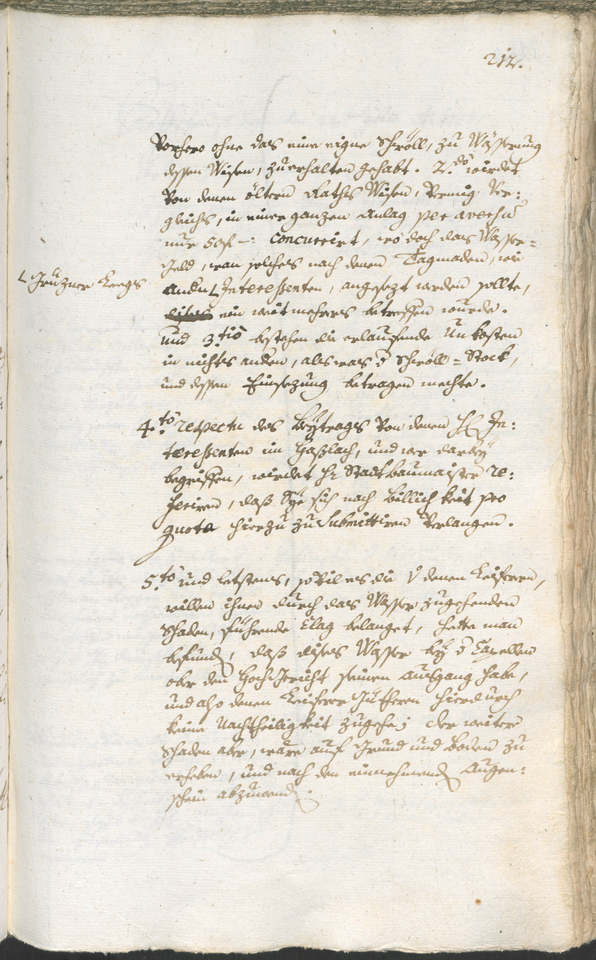 212.
Vorhero ohne das eine eigne Schwöll, zu Wässerung
dessen Wisen, zuerhalten gehabt. 2.do wirdet
Von denen öltern Raths Wisen, Vermig Ver-
gleichs, in einer ganzen Anlag per aversū
nur 50 f –: concurrirt, wo doch das Wasser-
geld, wan solches nach denen Tagmaden, wie
andrn Interessenten, angesezt werden sollte,
ein weit mehrers betreffen wurde.
und 3.tio bestehen die erlauffende Unkosten
in nichts andern, als was d Schwöll-Stock,
und dessen Einsezung betragen mechte.
4.to respectu des Beytrages von denen H In-
teressenten im Haßlach, und wer darbey
begriffen, wirdet Hr Stadtbaumaister re-
feriren, daß Sye sich nach Billichkeit pro
quota hierzu zu submittiren Verlangen.
5.to und letstens, sovil es die V denen
willen ihnen durch das Wasser zugehenden
Schaden, führende Clag belanget, hette man
befund, daß dises Wasser bey d Capellen
ober den Hochgericht seinen Ausgang habe,
und also denen güttern hierdurch
keine Nachtheiligkeit zugehe; der weitere
Schaden aber, ware auf Grund und Boden zu
erheben, und nach den einnehmend Augen-
schein abzuwend.